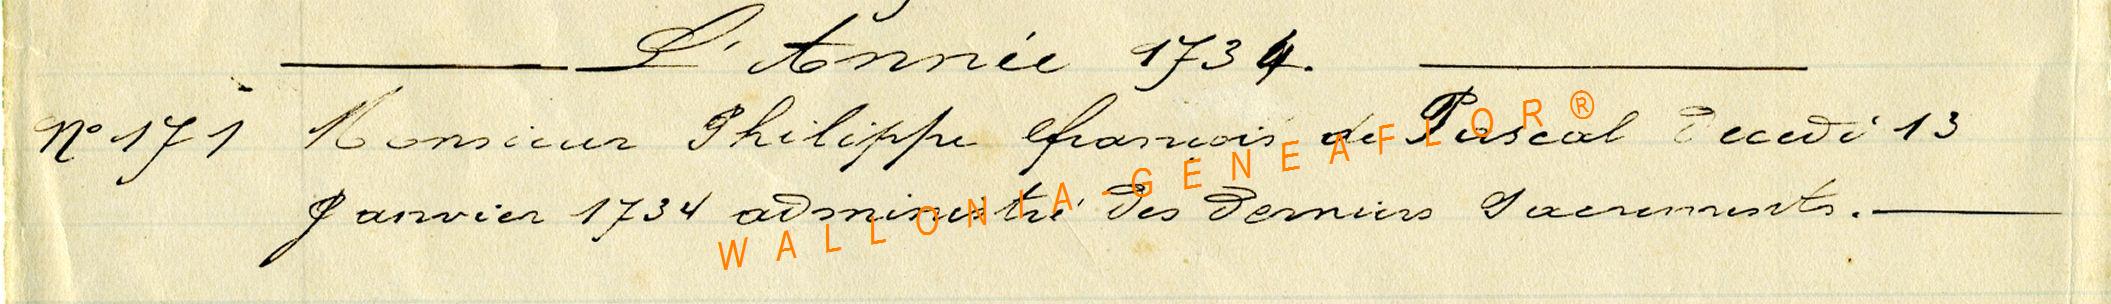 L'Année 1734.
N° 171 Monsieur Philippe françois de Pascal decedé 13
Janvier 1734 administré des derniers Sacrements.
WALLONIA-GENEAFLOR®